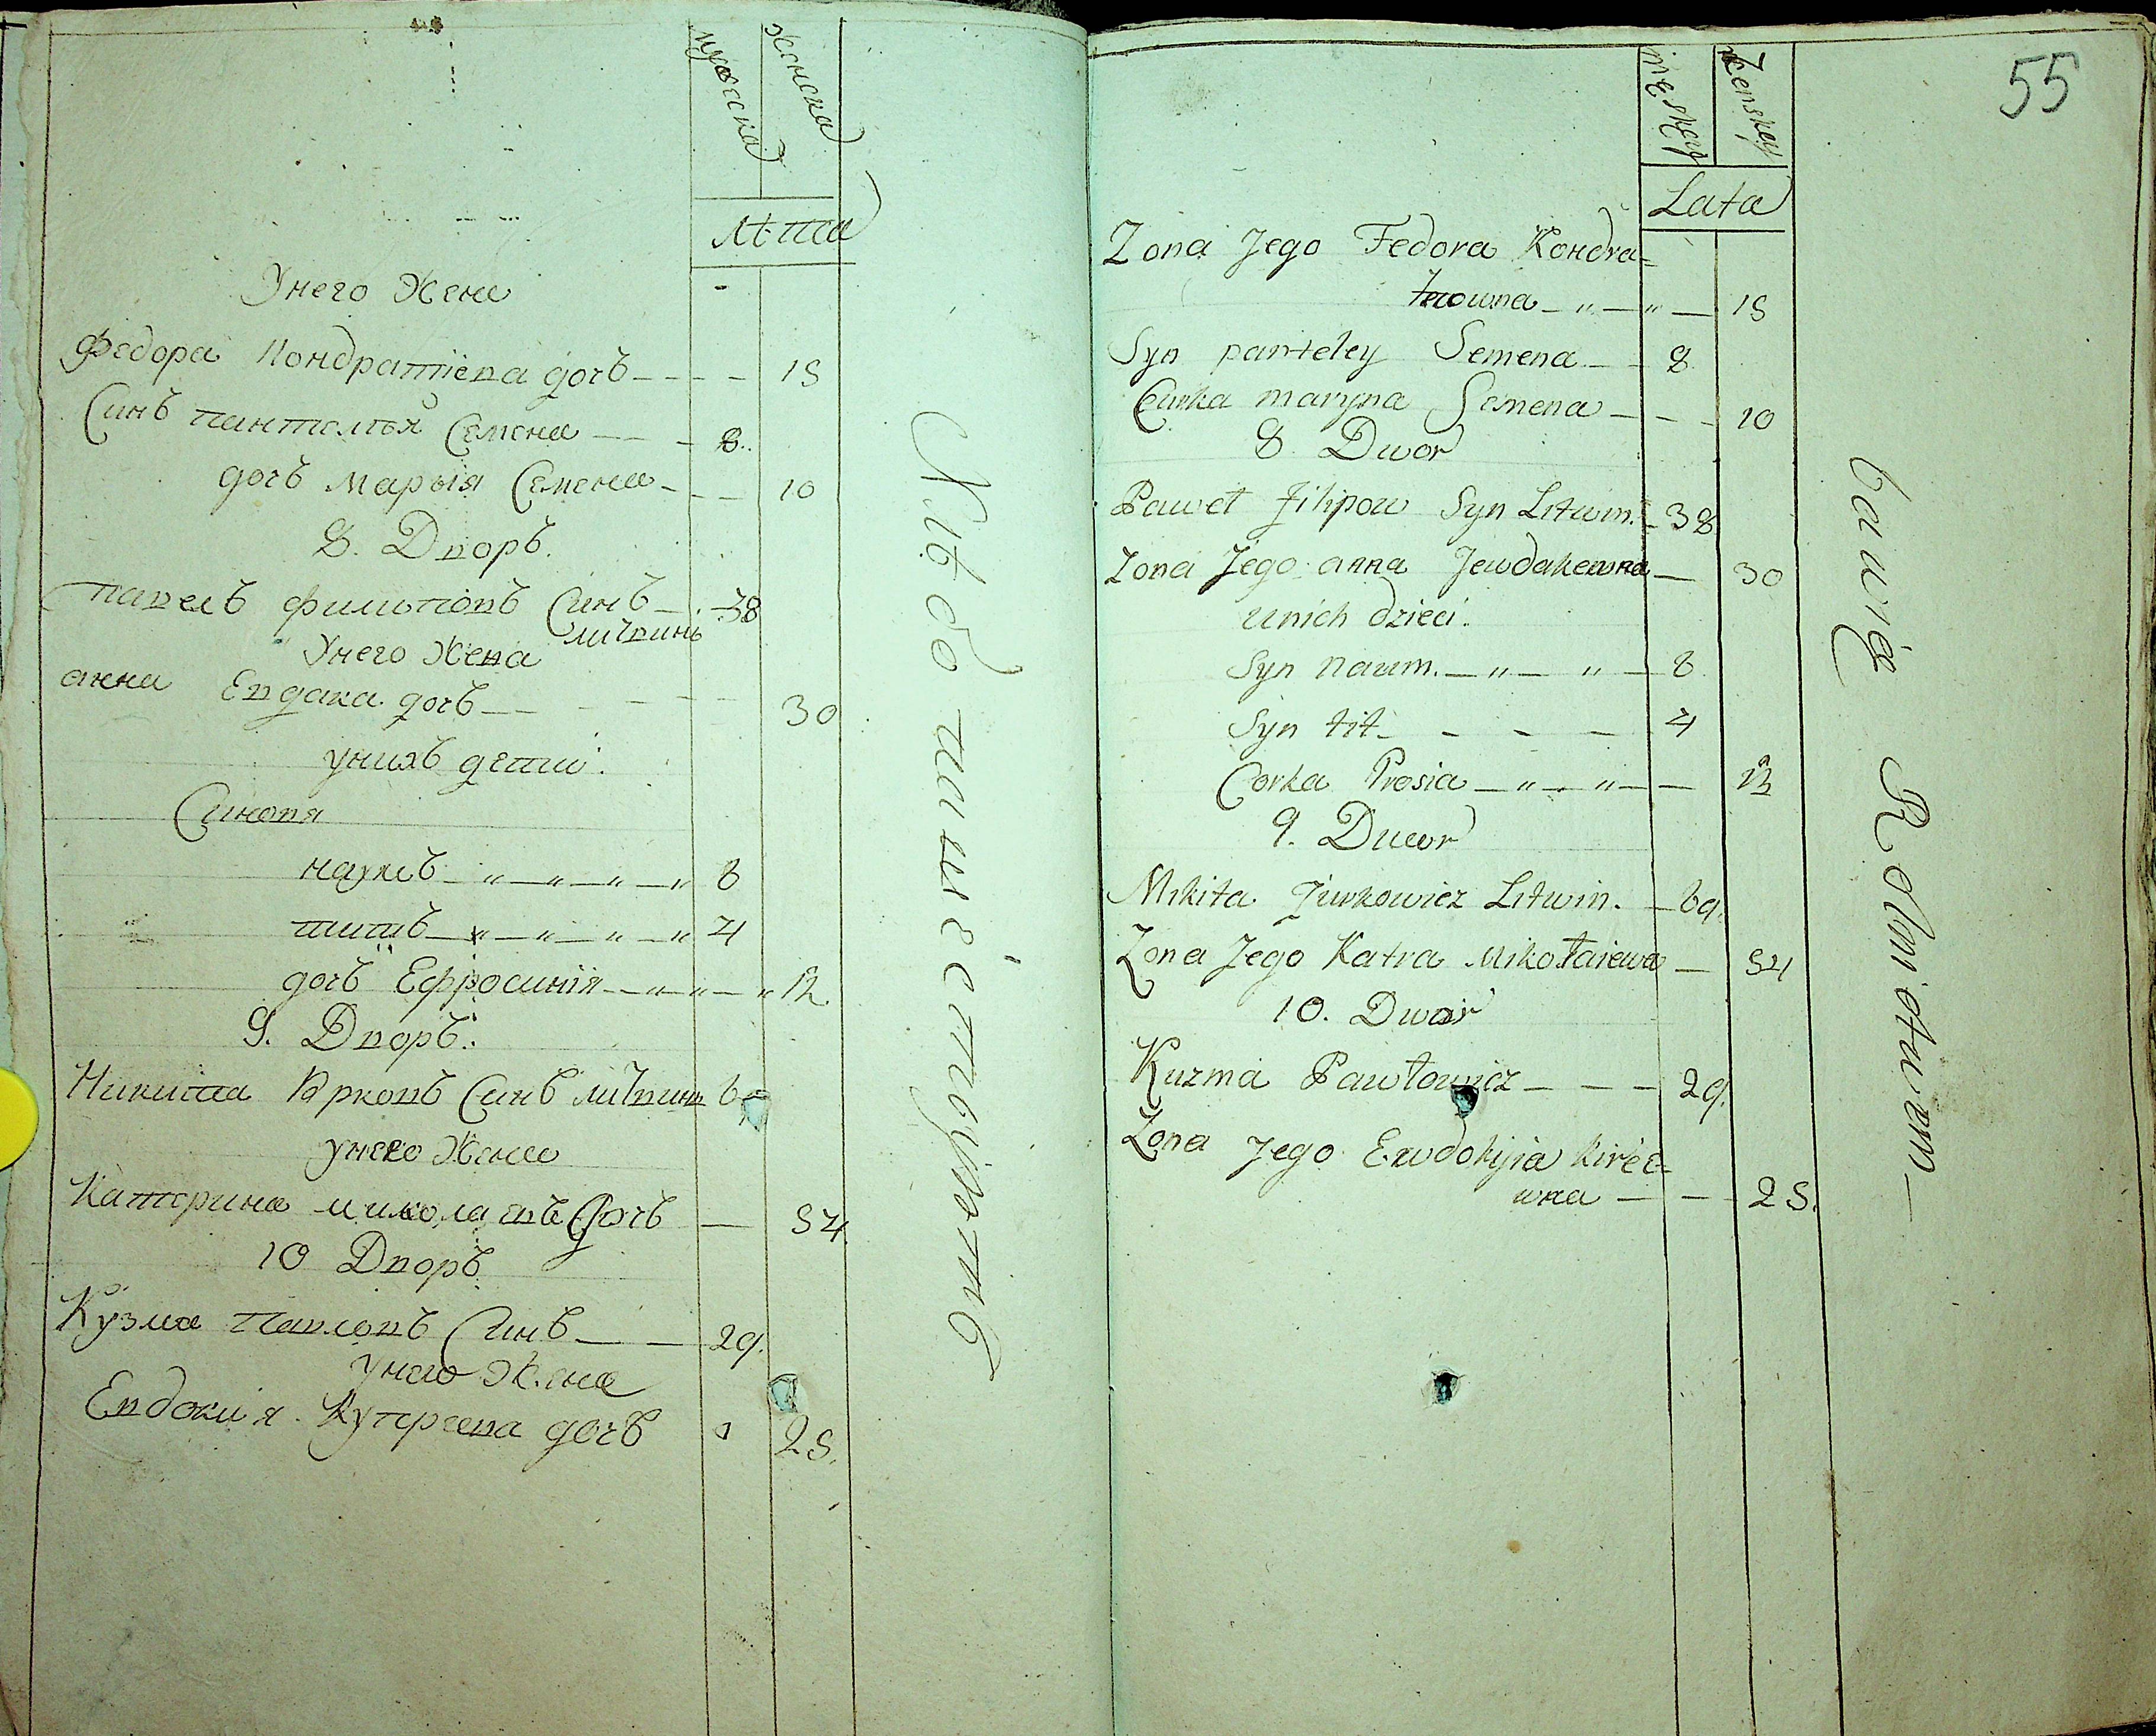 мужеска женска
лѣта
Унего Жена
Федора Кондратіева дочъ — — — 15
Синъ пантелѣй Семена — — 8.
дочъ Марыя Семена — — 10
8. Дворъ.
павелъ филиповъ Синъ — 38
литвинъ
Унего Жена
анна Евдака дочъ — — — 30
унихъ дети:
Синовя
наумъ — " — " — " — " 8
титъ — " — " — " — " 4
дочъ Ефросинія — " — " — " 12
9. Дворъ:
Никита Юрковъ Синъ литвинъ 69
унего Жена
Катерина миколаевъ Дочъ — 54
10 Дворъ
Кузма павловъ Синъ — — 29.
унего Жена
Евдокия дочъ 25.
55
męskey żenskey
Lata
Zona Jego Fedora Kondra=
towna — " — " — 15
Syn panteley Semena — — 8
Curka maryna Semena — — — 10
8. Dwor
Paweł filipow Syn Litwin. — 38
Zona Jego anna Jewdakewna — 30
unich dzieci.
Syn naum. — " — " — 8
Syn tit — — — — 4
Corka Prosia — " — " — — 12
9. Dwor
Mikita Jurkowicz Litwin. — 69.
Zona Jego Katra Mikołaiewa — 54
10. Dwor
Kuzma Pawłowicz — — — 29.
Zona Jego Ewdokijia kirée=
wna — — 25.